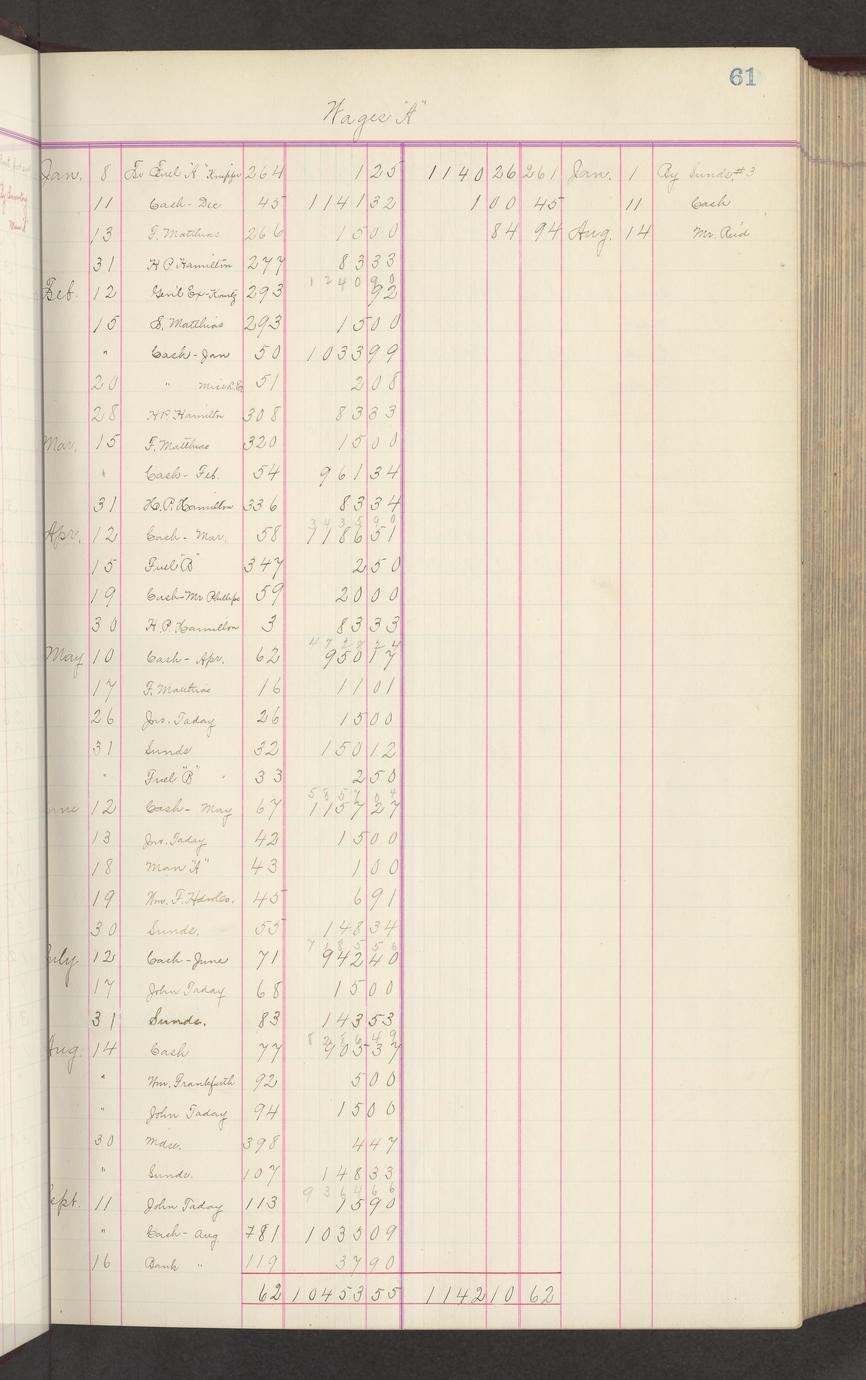 61
Wages "A"
Jan. 8 To Fuel "A" 264 1 25 1140 26 261 Jan. 1 By Sunds #3
11 Cash - Dec 45 1141 32 1 00 45 11 Cash
13 F. Matthias 266 15 00 84 94 Aug. 14 Mr. Reid
31 H P Hamilton 277 83 33
1240 90
Feb. 12 Genl Ex- 293 92
15 F. Matthias 293 15 00
" Cash - Jan 50 1033 99
20 " 51 2 08
28 H P. Hamilton 308 83 33
Mar. 15 F. Matthias 320 15 00
" Cash - Feb. 54 961 34
31 H. P. Hamilton 336 83 34
3435 90
Apr. 12 Cash - Mar. 58 1186 51
15 Fuel "B" 347 2 50
19 Cash - Mr Phillips 59 20 00
30 H. P. Hamilton 3 83 33
4728 24
May 10 Cash - Apr. 62 950 17
17 F. Matthias 16 11 01
26 Jno. Taday 26 15 00
31 Sunds 32 150 12
" Fuel "B" " 33 2 50
5857 04
June 12 Cash - May 67 1157 27
13 Jno. Taday 42 15 00
18 Man "A" 43 1 00
19 Wm. F. 45 6 91
30 Sunds. 55 148 34
7185 56
July 12 Cash - June 71 942 40
17 John Taday 68 15 00
31 Sunds. 83 143 53
8286 49
Aug. 14 Cash 77 905 37
" Wm. Frankfurth 92 5 00
" John Taday 94 15 00
30 Mdse. 398 4 47
" Sunds. 107 148 33
9364 66
Sept. 11 John Taday 113 15 90
" Cash - Aug 781 1035 09
16 Bank " 119 37 90
62 10453 55 1142 10 62